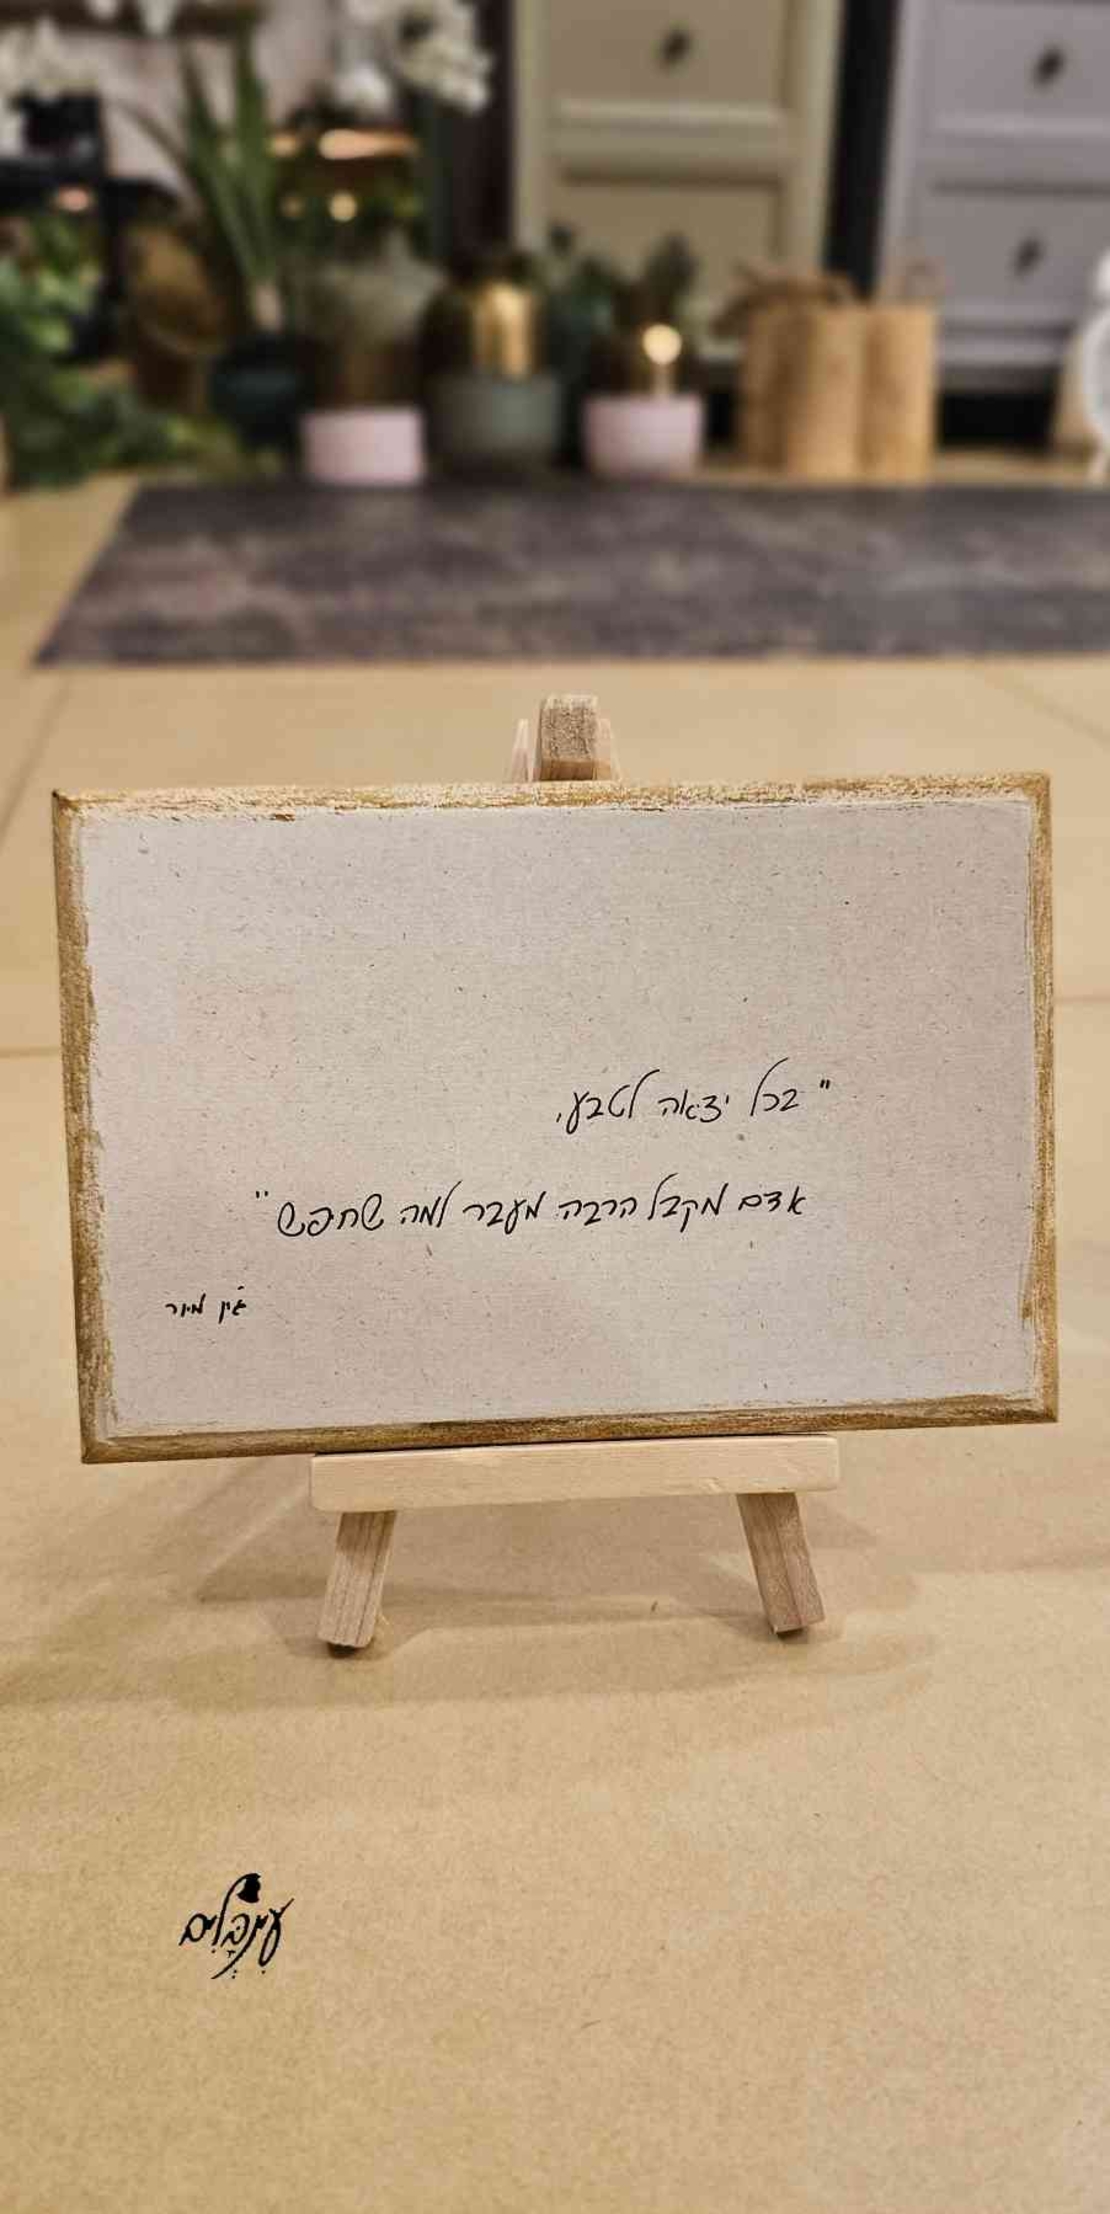 "בכל יציאה לטבע,
אדם מקבל הרבה מעבר למה שחיפש"
ג'ון מיור